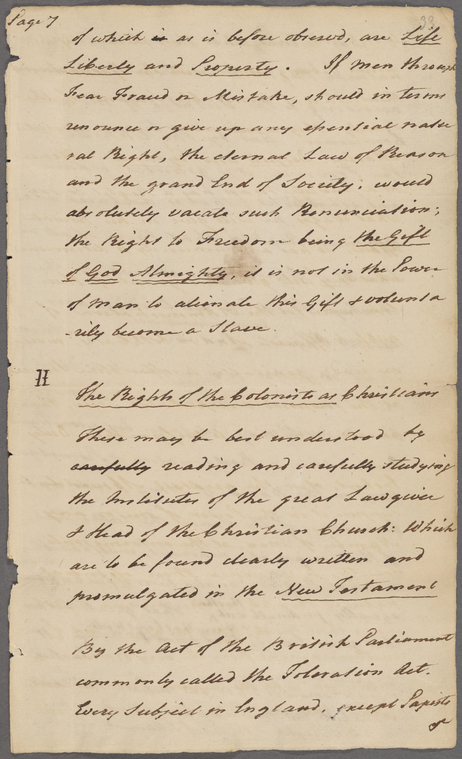 Page 7
33
of which is as is before observd, are Life
Liberty and Property. If men through
Fear Fraud or Mistake, should in terms
renounce or give up any essential natu
ral Right, the eternal Law of Reason
and the grand End of Society, would
absolutely vacate such Renunciation;
the Right to Freedom being the Gift
of God Almighty, it is not in the Power
of Man to alienate this Gift & volunta
-rily become a Slave.
II
The Rights of the Colonists as Christians
These may be best understood by
carefully reading and carefully studying
the Institutes of the great Lawgiver
& Head of the Christian Church: Which
are to be found clearly written and
promulgated in the New Testament
By the Act of the British Parliament
commonly called the Toleration Act.
Every Subject in England, except Papists
&